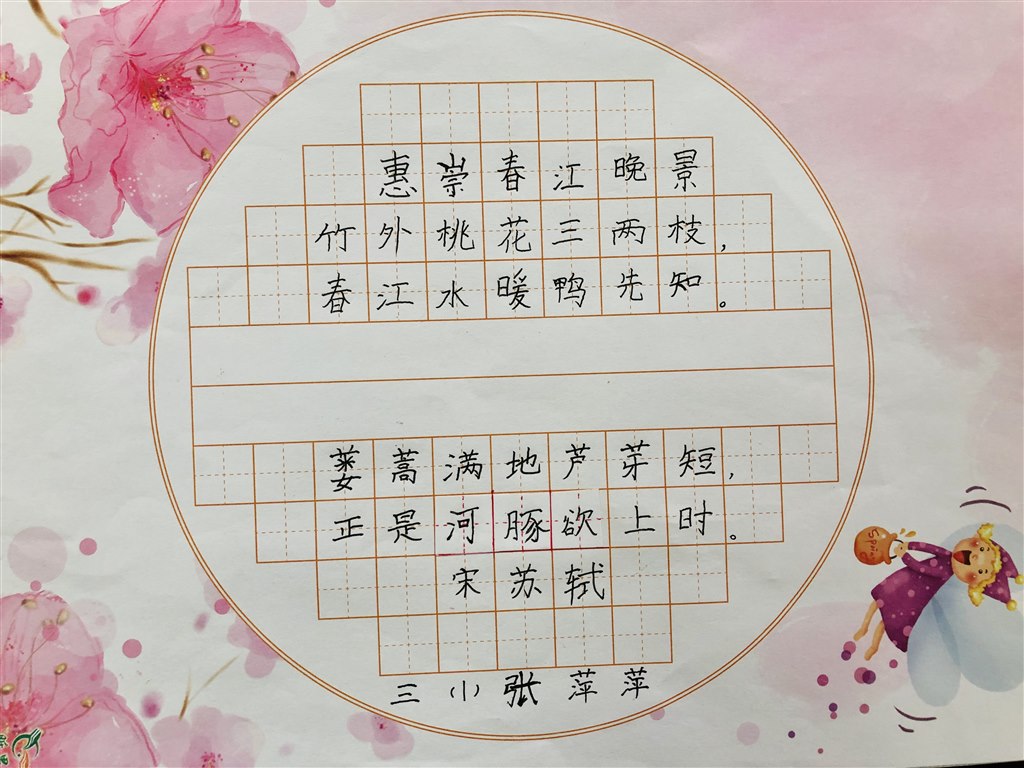 惠崇春江晚景
竹外桃花三两枝，
春江水暖鸭先知。
蒌蒿满地芦芽短，
正是河豚欲上时。
宋苏轼
三小张萍萍